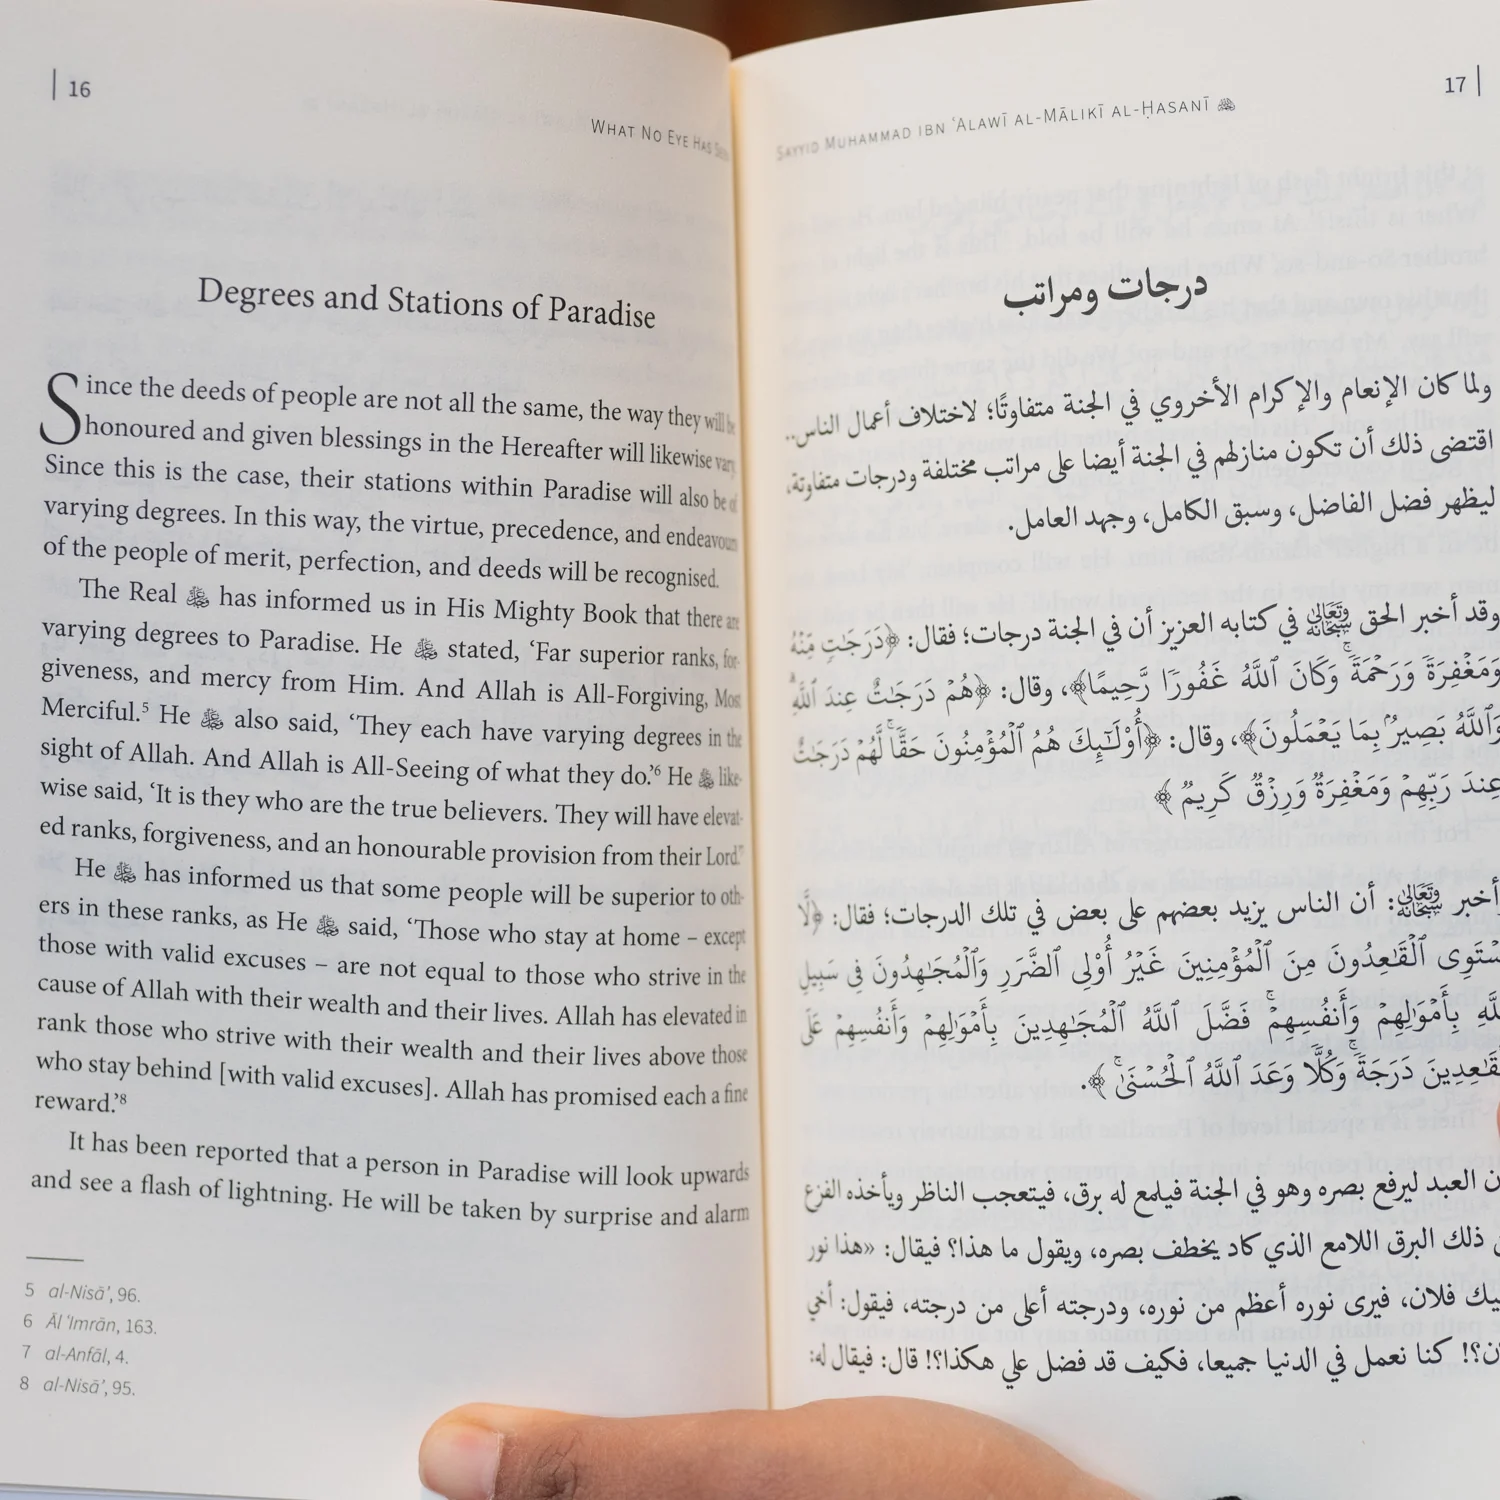 16
WHAT NO EYE HAS
Degrees and Stations of Paradise
Since the deeds of people are not all the same, the way they will be
honoured and given blessings in the Hereafter will likewise vary.
Since this is the case, their stations within Paradise will also be of
varying degrees. In this way, the virtue, precedence, and endeavours
of the people of merit, perfection, and deeds will be recognised.
The Real ﷻ has informed us in His Mighty Book that there are
varying degrees to Paradise. He ﷻ stated, ‘Far superior ranks, for-
giveness, and mercy from Him. And Allah is All-Forgiving, Most
Merciful.5 He ﷻ also said, ‘They each have varying degrees in the
sight of Allah. And Allah is All-Seeing of what they do.’6 He ﷻ like-
wise said, ‘It is they who are the true believers. They will have elevat-
ed ranks, forgiveness, and an honourable provision from their Lord.’7
He ﷻ has informed us that some people will be superior to oth-
ers in these ranks, as He ﷻ said, ‘Those who stay at home – except
those with valid excuses – are not equal to those who strive in the
cause of Allah with their wealth and their lives. Allah has elevated in
rank those who strive with their wealth and their lives above those
who stay behind [with valid excuses]. Allah has promised each a fine
reward.’8
It has been reported that a person in Paradise will look upwards
and see a flash of lightning. He will be taken by surprise and alarm
5 al-Nisā’, 96.
6 Āl ‘Imrān, 163.
7 al-Anfāl, 4.
8 al-Nisā’, 95.
17
SAYYID MUHAMMAD IBN ‘ALAWĪ AL-MĀLIKĪ AL-ḤASANĪ
درجات ومراتب
ولما كان الإنعام والإكرام الأخروي في الجنة متفاوتًا؛ لاختلاف أعمال الناس..
اقتضى ذلك أن تكون منازلهم في الجنة أيضا على مراتب مختلفة ودرجات متفاوتة،
ليظهر فضل الفاضل، وسبق الكامل، وجهد العامل.
وقد أخبر الحق سُبْحَانَهُ وَتَعَالَىٰ في كتابه العزيز أن في الجنة درجات؛ فقال: ﴿دَرَجَٰتٍ مِّنْهُ
وَمَغْفِرَةً وَرَحْمَةً ۚ وَكَانَ ٱللَّهُ غَفُورًا رَّحِيمًا﴾، وقال: ﴿هُمْ دَرَجَٰتٌ عِندَ ٱللَّهِ ۗ
وَٱللَّهُ بَصِيرٌۢ بِمَا يَعْمَلُونَ﴾، وقال: ﴿أُو۟لَٰٓئِكَ هُمُ ٱلْمُؤْمِنُونَ حَقًّا ۚ لَّهُمْ دَرَجَٰتٌ
عِندَ رَبِّهِمْ وَمَغْفِرَةٌ وَرِزْقٌ كَرِيمٌ﴾
أخبر سُبْحَانَهُ وَتَعَالَىٰ: أن الناس يزيد بعضهم على بعض في تلك الدرجات؛ فقال: ﴿لَّا
سْتَوِى ٱلْقَٰعِدُونَ مِنَ ٱلْمُؤْمِنِينَ غَيْرُ أُو۟لِى ٱلضَّرَرِ وَٱلْمُجَٰهِدُونَ فِى سَبِيلِ
للَّهِ بِأَمْوَٰلِهِمْ وَأَنفُسِهِمْ ۚ فَضَّلَ ٱللَّهُ ٱلْمُجَٰهِدِينَ بِأَمْوَٰلِهِمْ وَأَنفُسِهِمْ عَلَى
قَٰعِدِينَ دَرَجَةً ۚ وَكُلًّا وَعَدَ ٱللَّهُ ٱلْحُسْنَىٰ ۚ﴾.
ن العبد ليرفع بصره وهو في الجنة فيلمع له برق، فيتعجب الناظر ويأخذه الفزع
ذلك البرق اللامع الذي كاد يخطف بصره، ويقول ما هذا؟ فيقال: «هذا نور
يك فلان، فيرى نوره أعظم من نوره، ودرجته أعلى من درجته، فيقول: أخي
ن؟! كنا نعمل في الدنيا جميعا، فكيف قد فضل علي هكذا؟! قال: فيقال له: